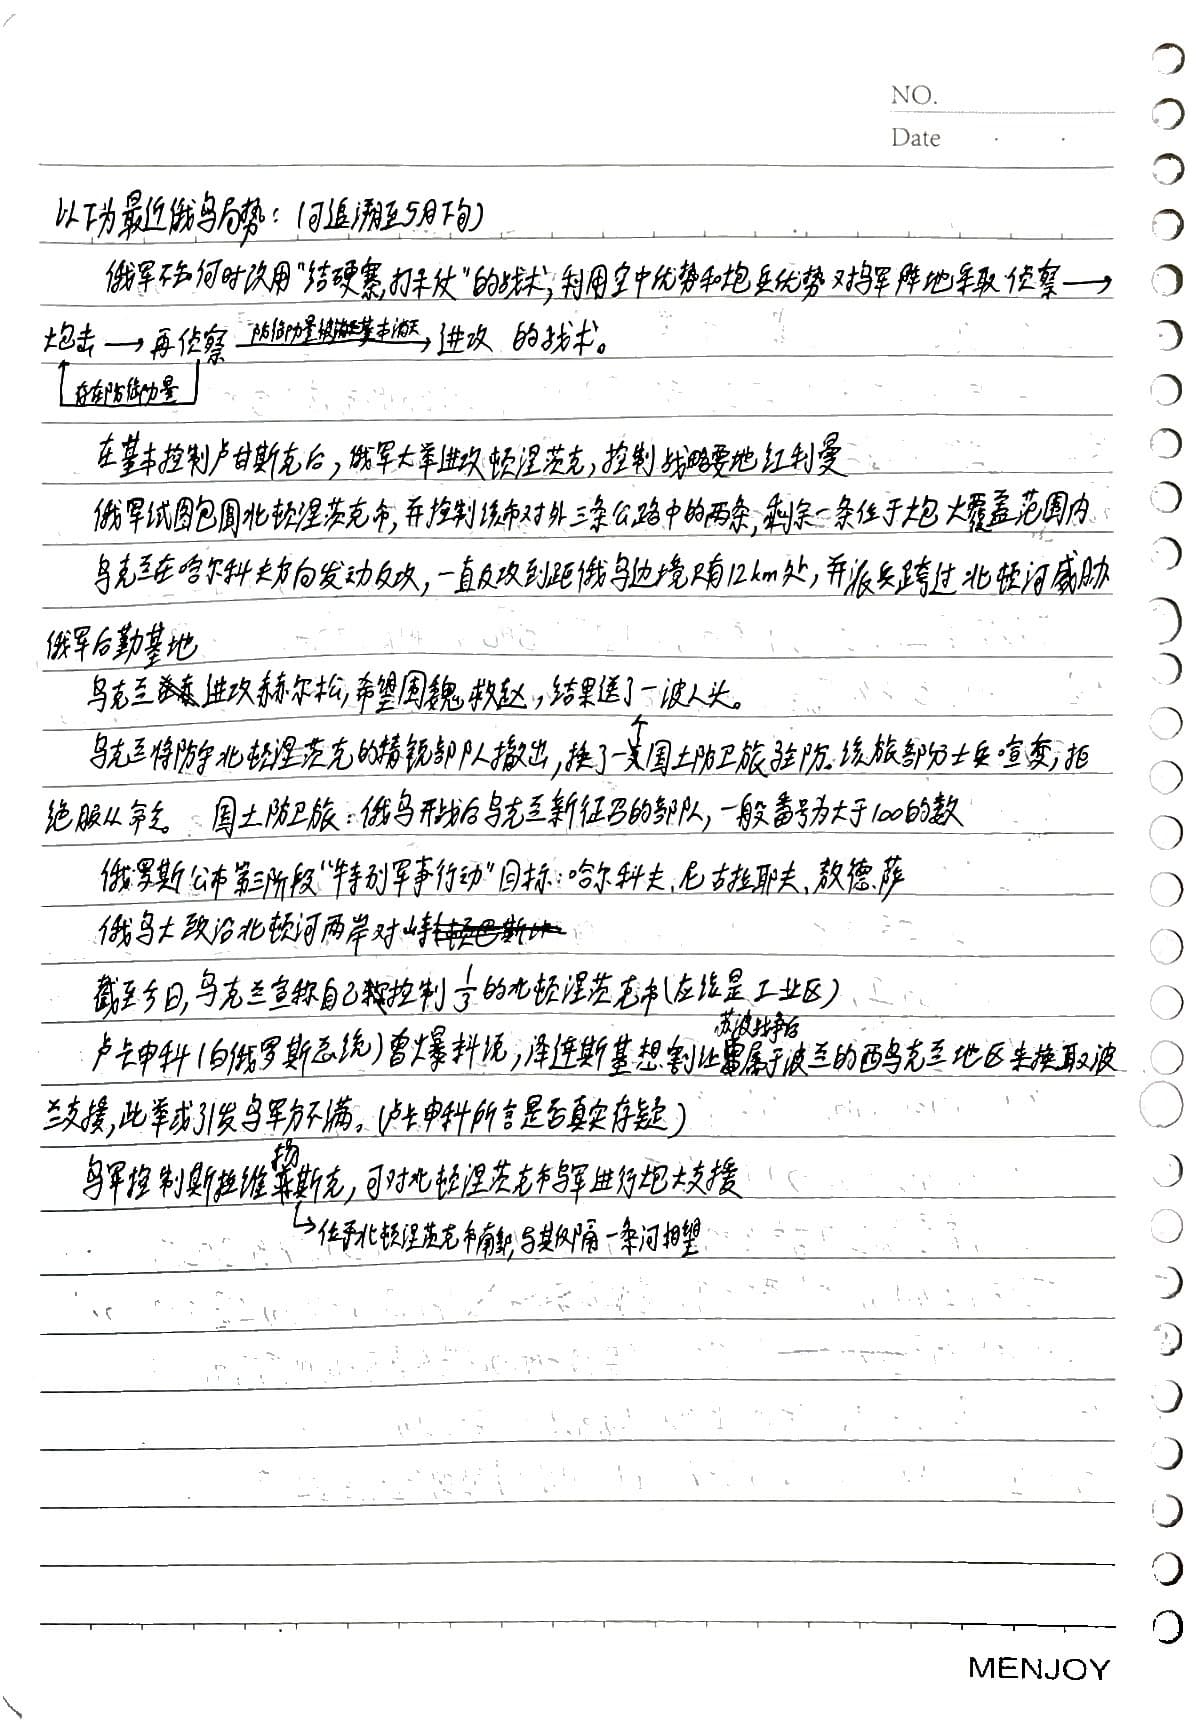 NO.
Date
以下为最近俄乌局势：(可追溯至5月下旬)
俄军不知何时改用“结硬寨,打呆仗”的战术，利用空中优势和炮兵优势对乌军阵地采取 侦察→
炮击→再侦察 防御力量被基本消灭→ 进攻 的战术。
存在防御力量
在基本控制卢甘斯克后，俄军大举进攻顿涅茨克，控制战略要地红利曼
俄军试图包围北顿涅茨克市，并控制该市对外三条公路中的两条，剩余一条位于炮火覆盖范围内
乌克兰在哈尔科夫方向发动反攻，一直反攻到距俄乌边境只有12km处，并派兵跨过北顿河威胁
俄军后勤基地
乌克兰进攻赫尔松，希望围魏救赵，结果送了一波人头。
乌克兰将防守北顿涅茨克的精锐部队撤出，换了一国土防卫旅驻防。该旅部分士兵哗变，拒
绝服从命令。 国土防卫旅：俄乌开战后乌克兰新征召的部队，一般番号为大于100的数
俄罗斯公布第三阶段“特别军事行动”目标：哈尔科夫、尼古拉耶夫、敖德萨
俄乌大致沿北顿河两岸对峙
截至今日，乌克兰宣称自己控制1/3的北顿涅茨克市(应该是工业区)
苏波战争后
卢卡申科(白俄罗斯总统)曾爆料说，泽连斯基想割让属于波兰的西乌克兰地区来换取波
兰支援，此举或引发乌军方不满。(卢卡申科所言是否真实存疑)
扬
乌军控制斯拉维斯克，可对北顿涅茨克市乌军进行炮火支援
↳位于北顿涅茨克市南部，与其仅隔一条河相望
MENJOY